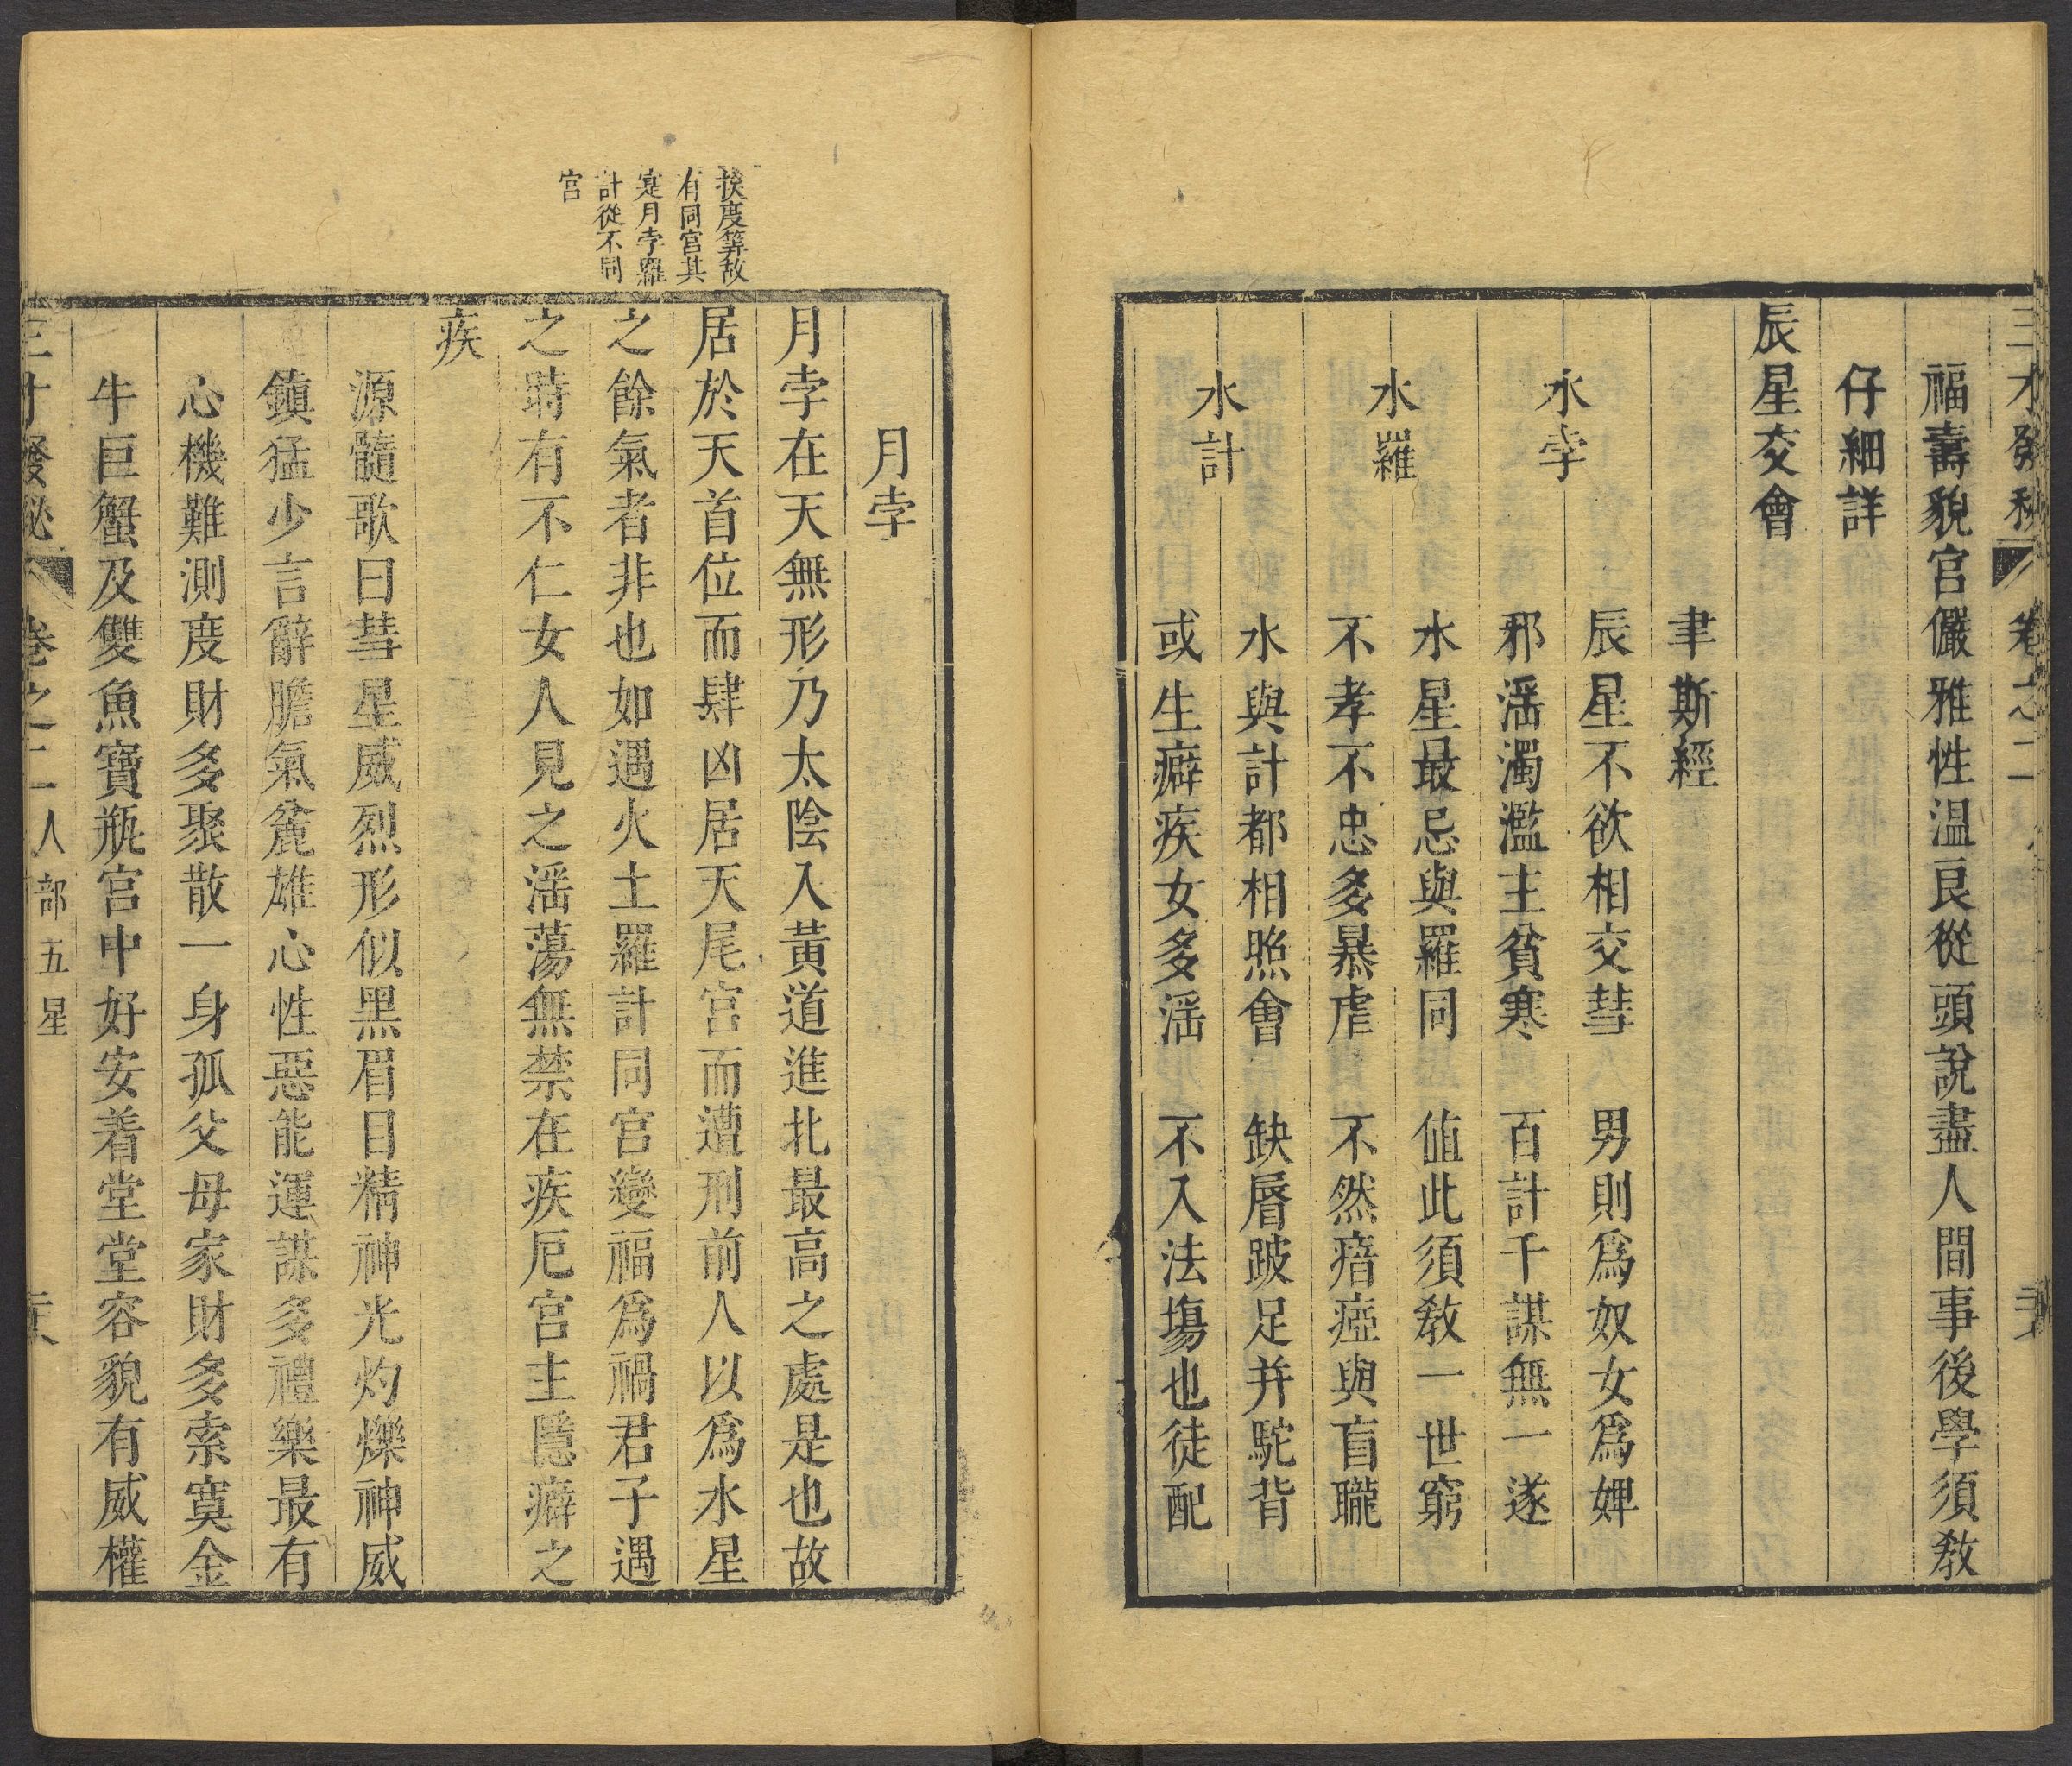 三才發秘 卷之二
福壽貌官儼雅性温良從頭說盡人間事後學須教
仔細詳
辰星交會
聿斯經
水孛
辰星不欲相交彗 男則爲奴女爲婢
邪滛濁濫主貧寒 百計千謀無一遂
水羅
水星最忌與羅同 値此須教一世窮
不孝不忠多暴虐 不然瘖瘂與盲矓
水計
水與計都相照會 缺脣跛足并駝背
或生癖疾女多滛 不入法塲也徒配
月孛
月孛在天無形乃太陰入黃道進北最高之處是也故
居於天首位而肆凶居天尾宮而遭刑前人以爲水星
之餘氣者非也如遇火土羅計同宮變福爲禍君子遇
之時有不仁女人見之滛蕩無禁在疾厄宮主隱癖之
疾
挨度筭故
有同宮其
寔月孛羅
計從不同
宮
源髓歌曰彗星威烈形似黑眉目精神光灼爍神威
鎮猛少言辭膽氣麄雄心性惡能運謀多禮樂最有
心機難測度財多聚散一身孤父母家財多索寞金
牛巨蟹及雙魚寶瓶宮中好安着堂堂容貌有威權
三才發秘 卷之二 人部五星